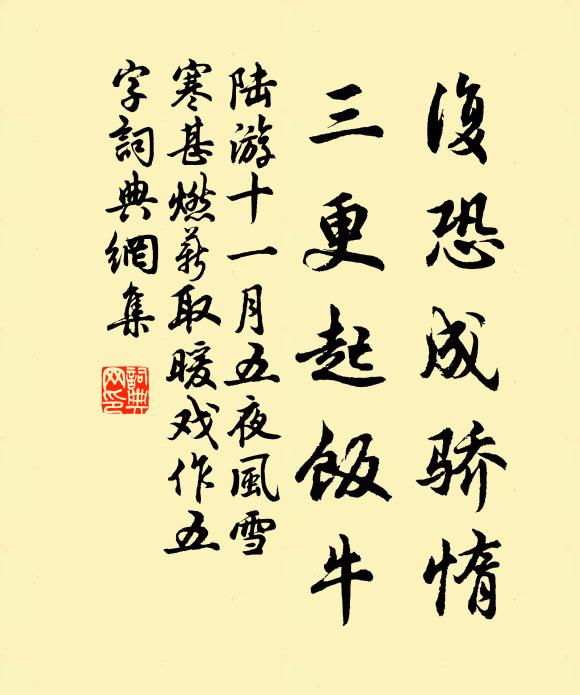 復恐成骄惰
三更起飯牛
陆游十一月五夜風雪
寒甚燃薪取暖戏作五
字詞典網集
詞典
网印